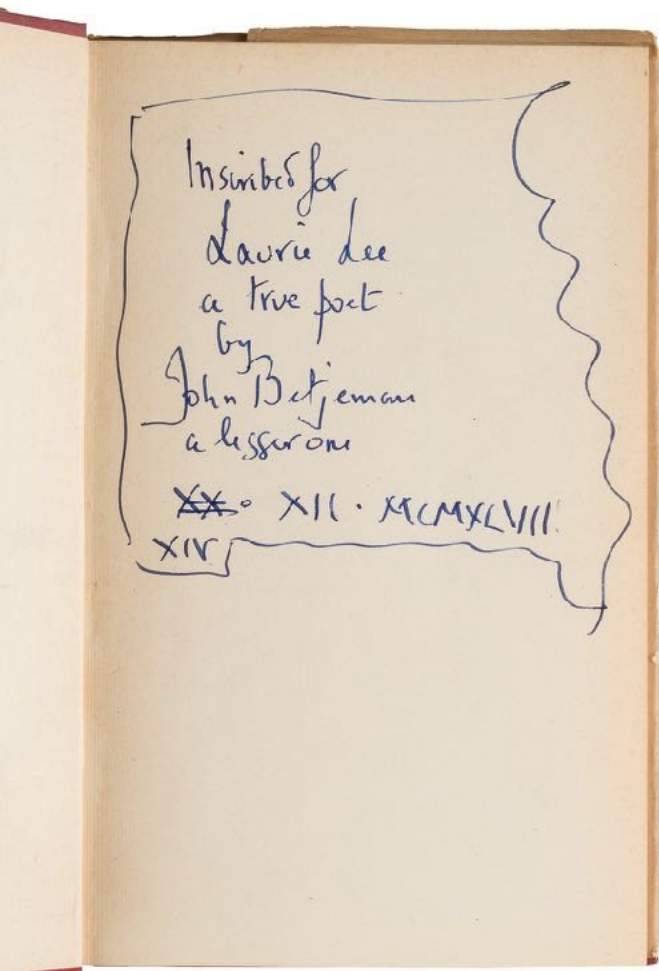 Inscribed for
Laurie Lee
a true poet
by
John Betjeman
a lesser one
XX. XII. MCMXLVIII.
XIV